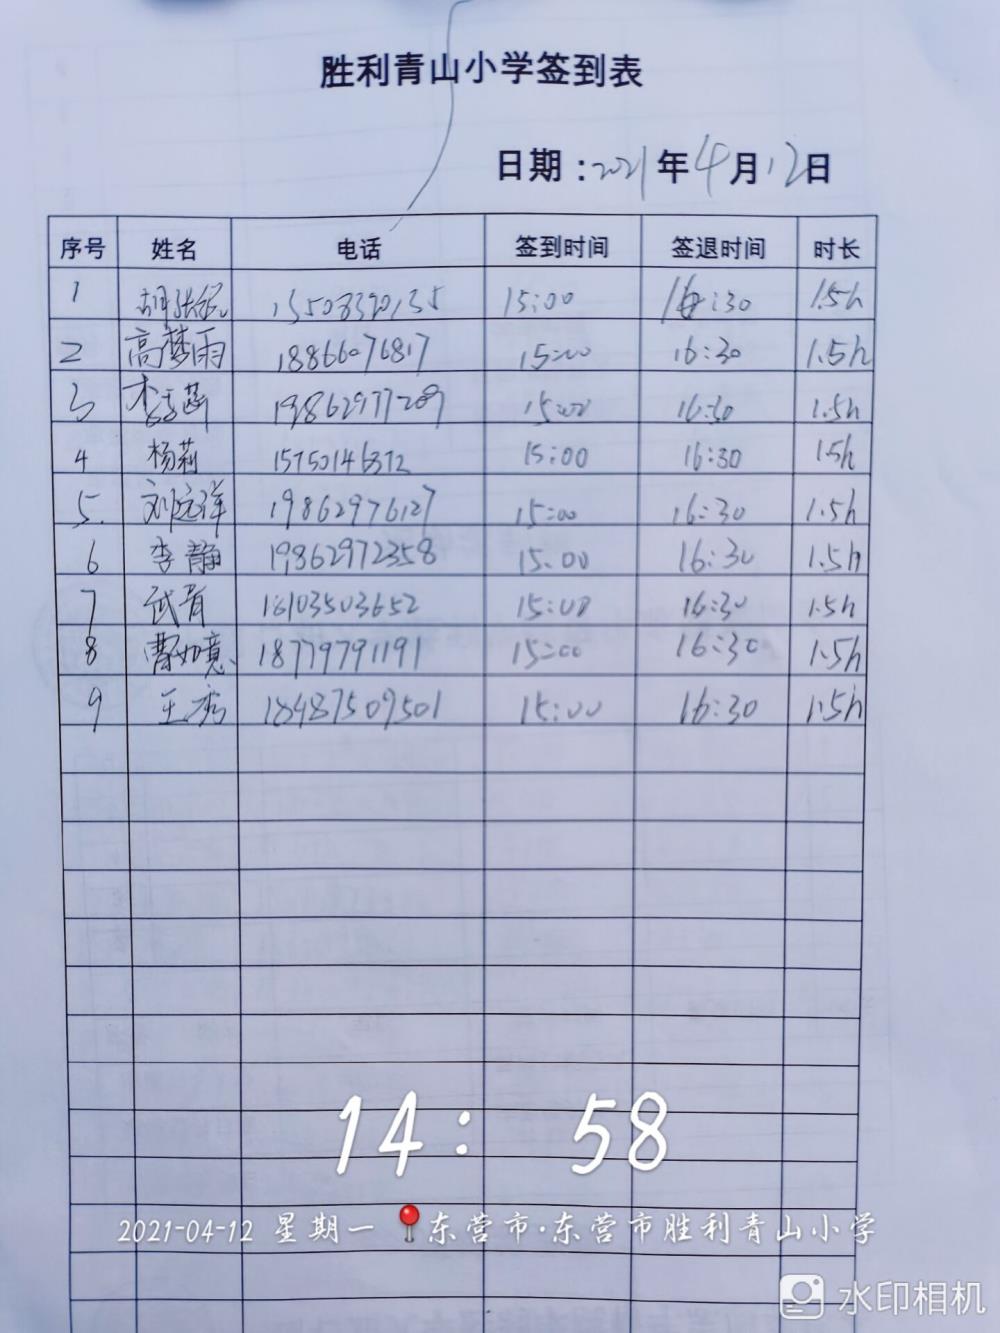 胜利青山小学签到表
日期：2021年4月12日
序号 姓名 电话 签到时间 签退时间 时长
1 15:00 16:30 1.5h
2 高梦雨 18866076817 15:00 16:30 1.5h
3 19862977209 15:00 16:30 1.5h
4 杨莉 15:00 16:30 1.5h
5. 刘远洋 19862976127 15:00 16:30 1.5h
6 李静 19862972358 15:00 16:30 1.5h
7 武育 18103503652 15:00 16:30 1.5h
8 曹如意 18779791191 15:00 16:30 1.5h
9 王秀 18487509501 15:00 16:30 1.5h
14: 58
2021-04-12 星期一 东营市·东营市胜利青山小学
水印相机